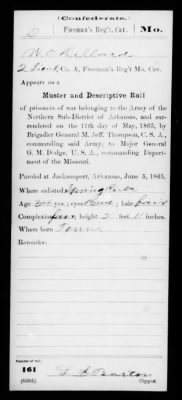 (Confederate.)
D Freeman's Reg't, Cav. Mo.
W. C. Dillard
2 Lieut, Co. A, Freeman's Reg't Mo. Cav.
Appears on a
Muster and Descriptive Roll
of prisoners of war belonging to the Army of the
Northern Sub-District of Arkansas, and sur-
rendered on the 11th day of May, 1865, by
Brigadier General M. Jeff. Thompson, C. S. A.,
commanding said Army, to Major General
G. M. Dodge, U. S. A., commanding Depart-
ment of the Missouri.
Paroled at Jacksonport, Arkansas, June 5, 1865.
Where enlisted Spring River
Age yrs.; eyes Blue; hair
Complexion fair; height feet 11 inches.
Where born Tenn
Remarks:
Number of roll:
161
Copyist.